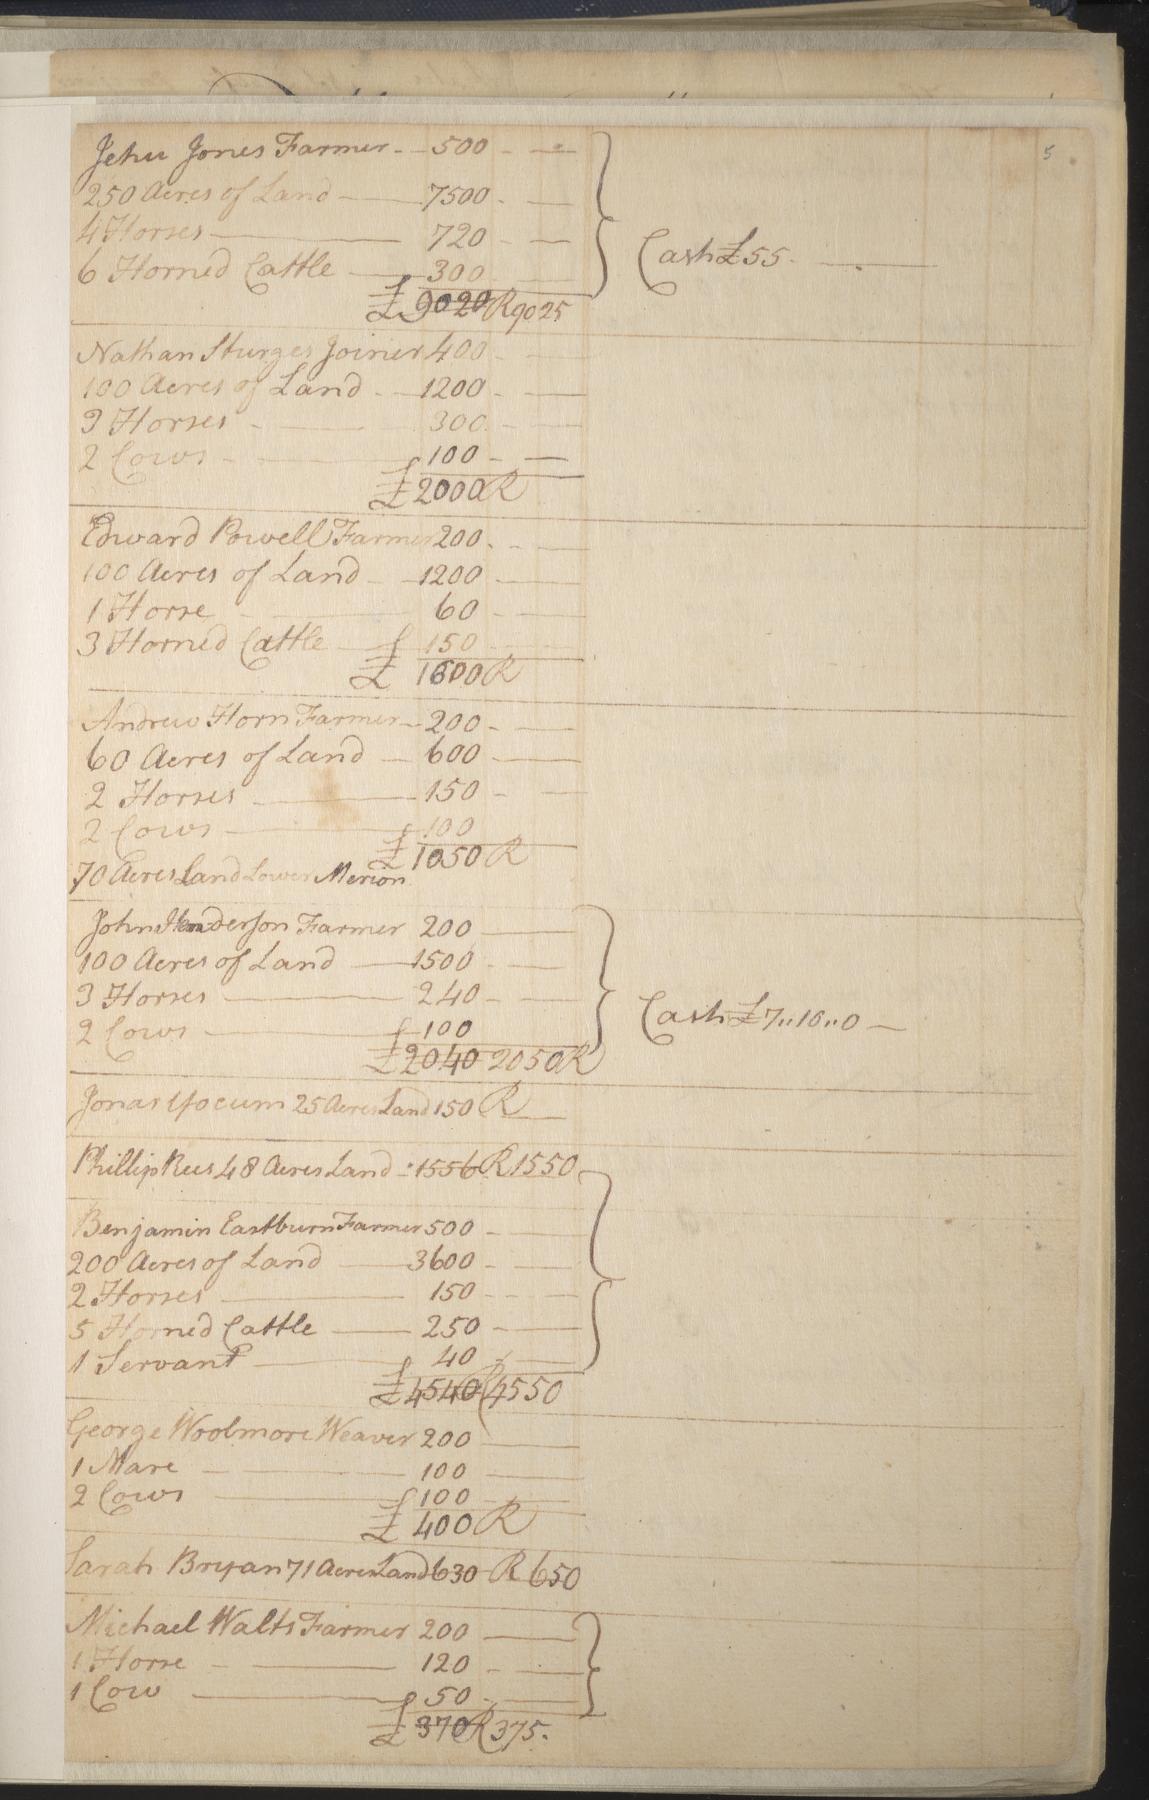 5
Jehu Jones Farmer 500
250 Acres of Land 7500
4 Horses 720
6 Horned Cattle 300
£ 9020 R 9025
Cash £55.
Nathan Sturges Joiner 400
100 Acres of Land 1200
3 Horses 300
2 Cows 100
£ 2000 R
Edward Powell Farmer 200
100 Acres of Land 1200
1 Horse 60
3 Horned Cattle 150
£ 1600 R
Andrew Horn Farmer 200
60 Acres of Land 600
2 Horses 150
2 Cows 100
£ 1050 R
70 Acres Land Lower Merion
John Henderson Farmer 200
100 Acres of Land 1500
3 Horses 240
2 Cows 100
£ 2040 2050 R
Cash £7,,16,,0
Jonas Yocum 25 Acres Land 150 R
Phillip Rees 48 Acres Land 1556 R 1550
Benjamin Eastburn Farmer 500
200 Acres of Land 3600
2 Horses 150
5 Horned Cattle 250
1 Servant 40
£ 4540 R 4550
George Woolmore Weaver 200
1 Mare 100
2 Cows 100
£ 400 R
Sarah Bryan 71 Acres Land 630 R 650
Michael Walts Farmer 200
1 Horse 120
1 Cow 50
£ 370 R 375.